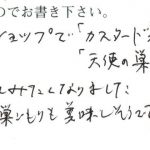 つでお書き下さい。
ショップで「カスタード
「天使の巣
しみたくなりました
巣ごもりも美味しそうで